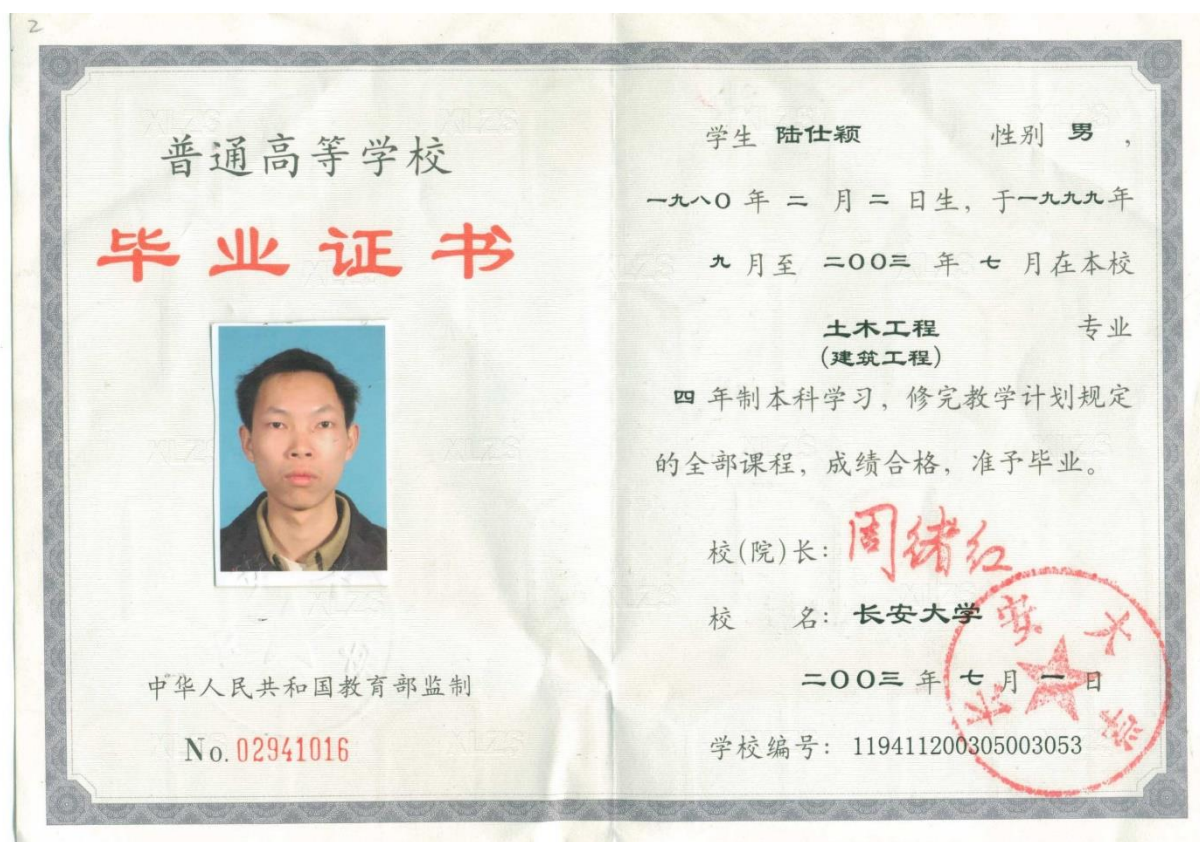 2
普通高等学校
毕业证书
中华人民共和国教育部监制
No. 02941016
学生 陆仕颖 性别 男，
一九八〇年 二 月 二 日生，于一九九九年
九 月至 二〇〇三 年 七 月在本校
土木工程 专业
(建筑工程)
四 年制本科学习，修完教学计划规定
的全部课程，成绩合格，准予毕业。
校(院)长：周绪红
校 名：长安大学
二〇〇三 年 七 月 一 日
学校编号：119411200305003053
长安大学
XLZS